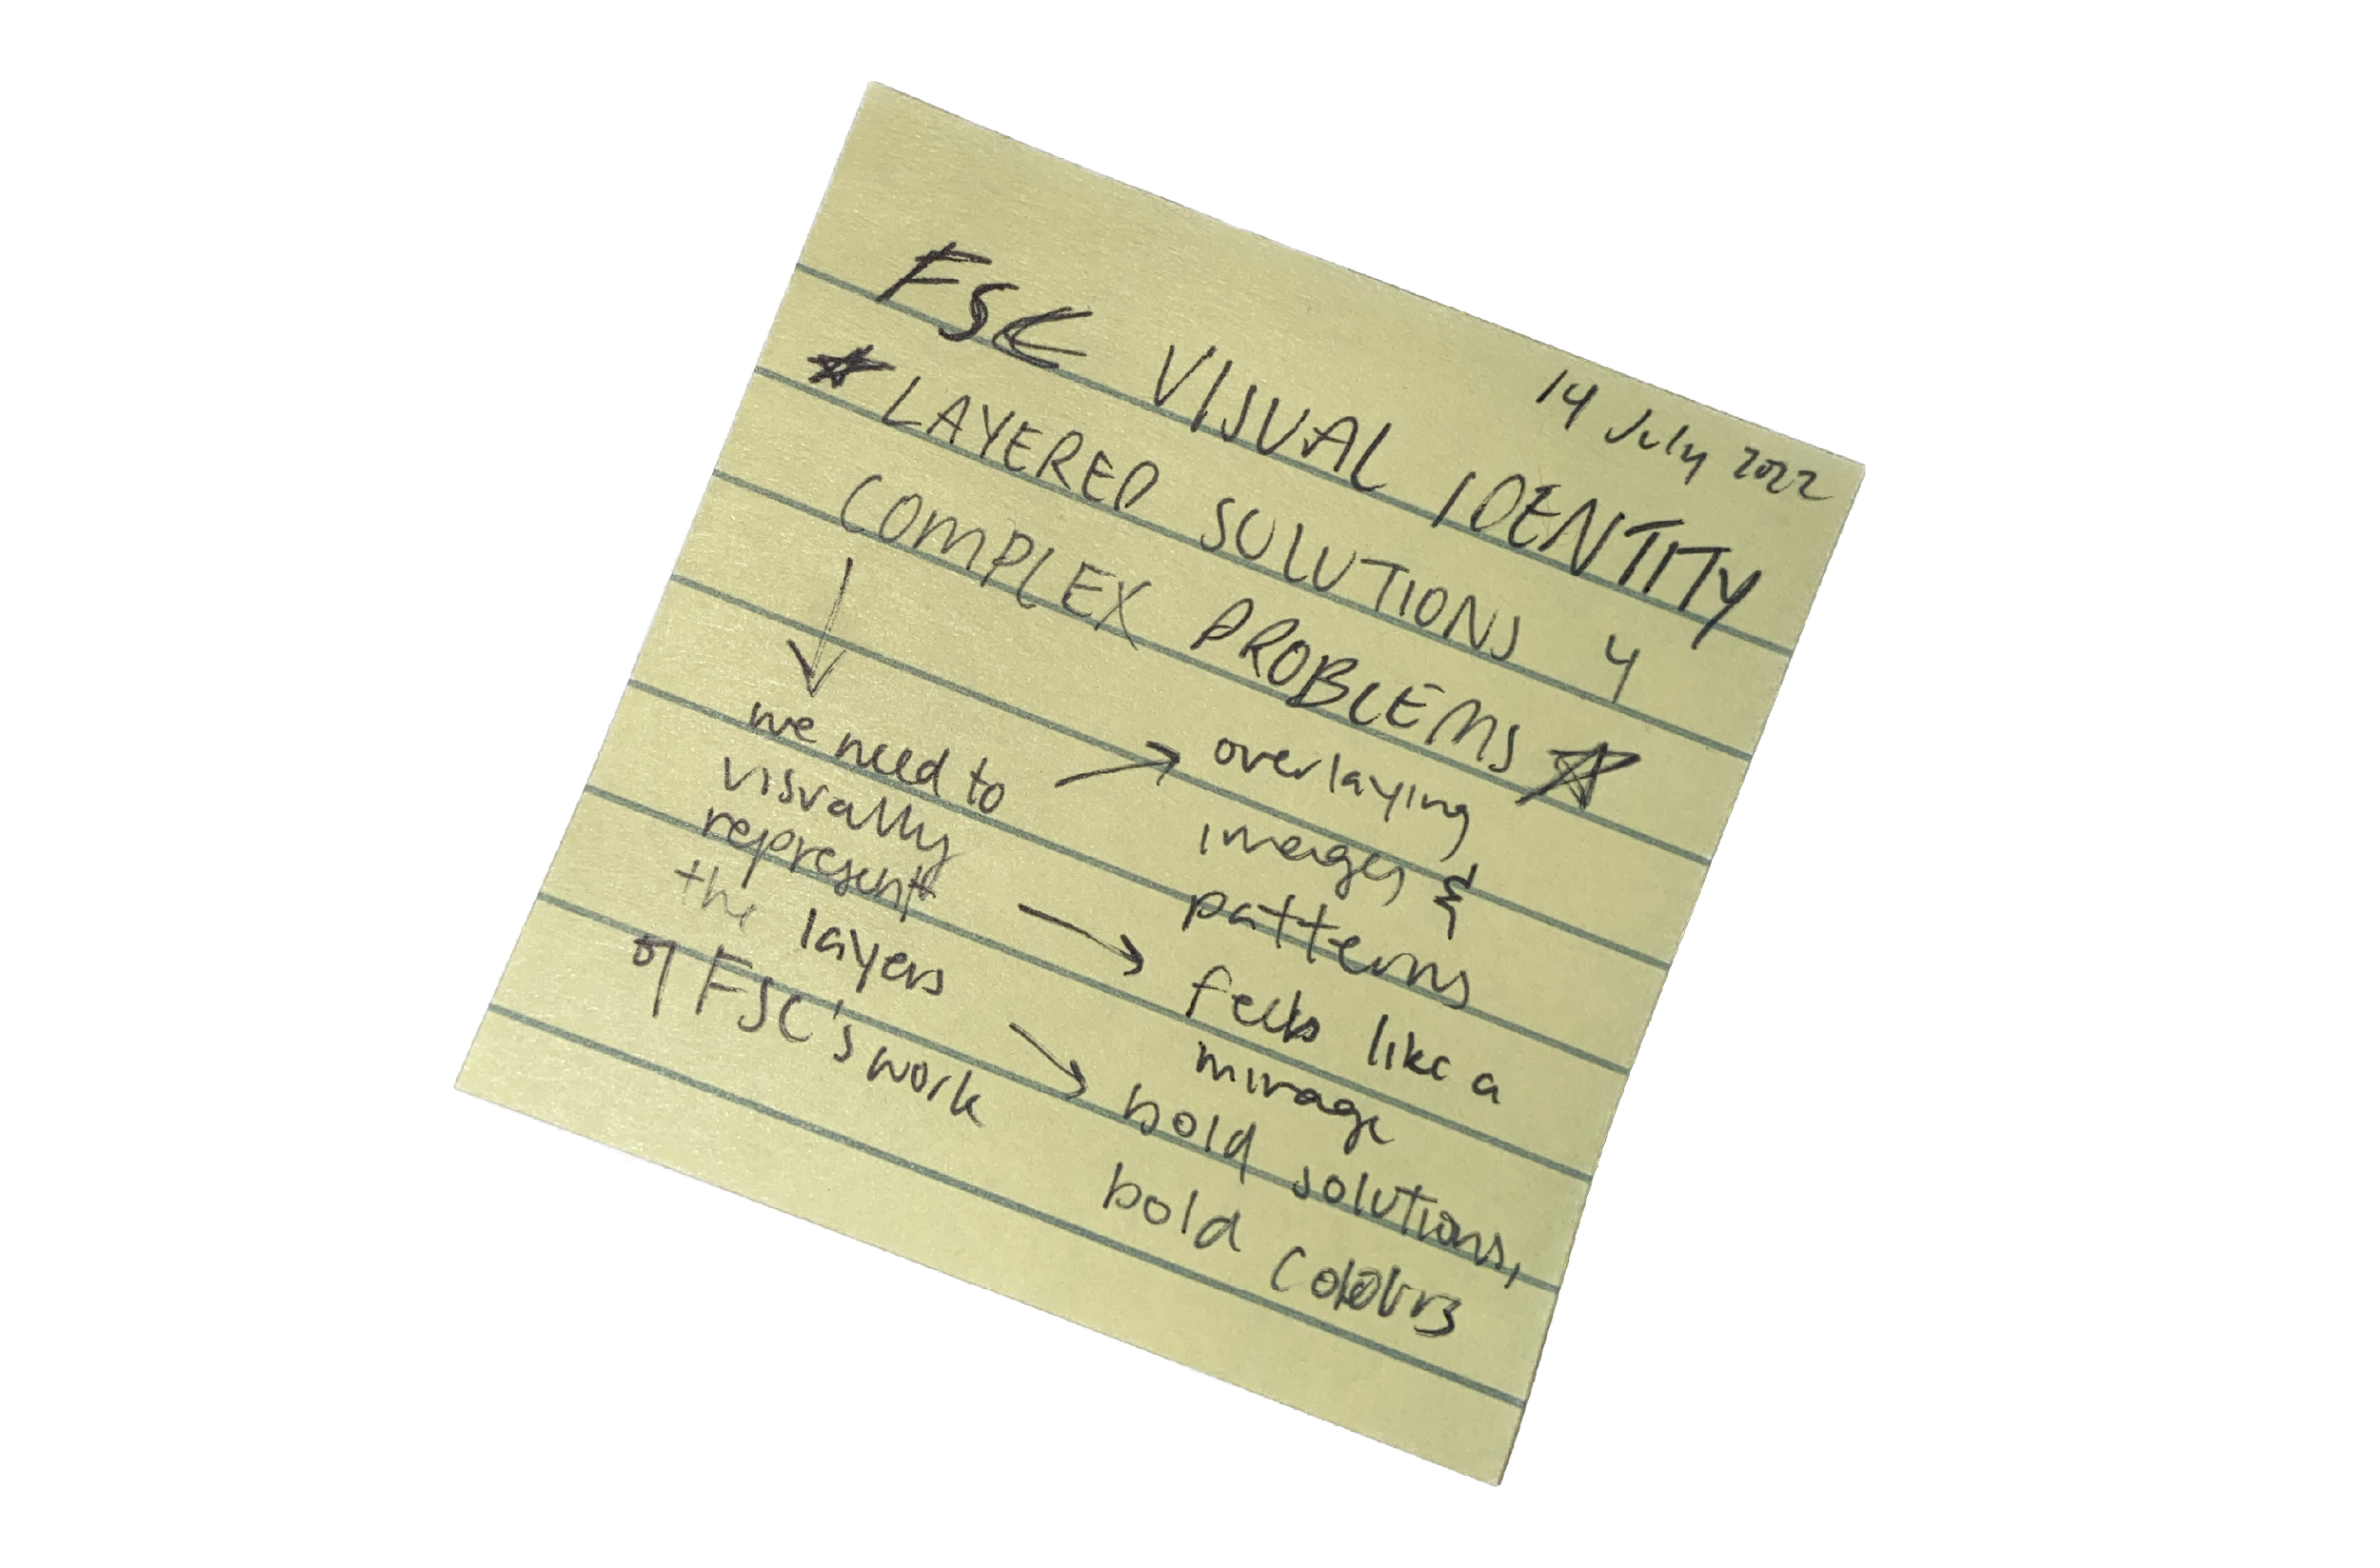 14 July 2022
FSC VISUAL IDENTITY
LAYERED SOLUTIONS 4
COMPLEX PROBLEMS
we need to
visually
represent
the layers
of FSC's work
overlaying
images &
patterns
feels like a
mirage
bold solutions,
bold colours